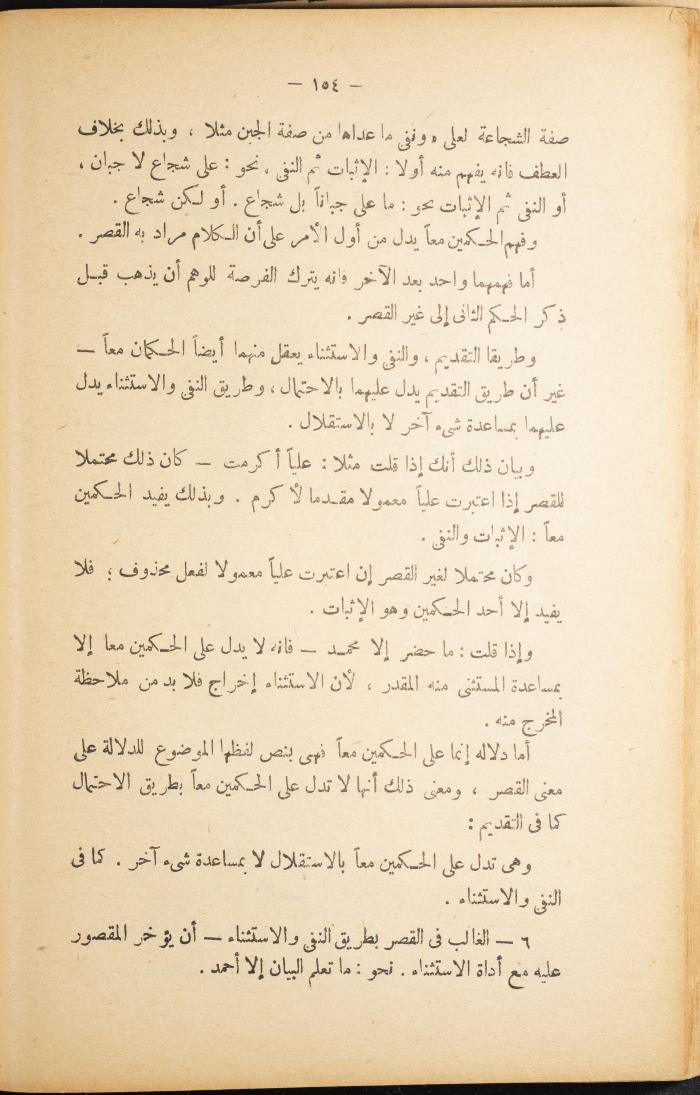 — ١٥٤ —
صفة الشجاعة لعلى « ونفى ما عداها من صفة الجبن مثلا ، وبذلك بخلاف
العطف فانه يفهم منه أولا : الإثبات ثم النفى ، نحو : على شجاع لا جبان ،
أو النفى ثم الإثبات نحو : ما على جباناً بل شجاع . أو لكن شجاع .
وفهم الحكمين معاً يدل من أول الأمر على أن الكلام مراد به القصر .
أما فهمهما واحد بعد الآخر فانه يترك الفرصة للوهم أن يذهب قبل
ذكر الحكم الثانى إلى غير القصر .
وطريقا التقديم ، والنفى والاستثناء يعقل منهما أيضاً الحكمان معاً —
غير أن طريق التقديم يدل عليهما بالاحتمال ، وطريق النفى والاستثناء يدل
عليهما بمساعدة شىء آخر لا بالاستقلال .
وبيان ذلك أنك إذا قلت مثلا : علياً أكرمت — كان ذلك محتملا
للقصر إذا اعتبرت علياً معمولا مقدما لأكرم . وبذلك يفيد الحكمين
معاً : الإثبات والنفى .
وكان محتملا لغير القصر إن اعتبرت علياً معمولا لفعل محذوف ؛ فلا
يفيد إلا أحد الحكمين وهو الإثبات .
وإذا قلت : ما حضر إلا محمد — فانه لا يدل على الحكمين معا إلا
بمساعدة المستثنى منه المقدر ، لأن الاستثناء إخراج فلا بد من ملاحظة
المخرج منه .
أما دلاله إنما على الحكمين معاً فهى بنص لفظها الموضوع للدلالة على
معنى القصر ، ومعنى ذلك أنها لا تدل على الحكمين معاً بطريق الاحتمال
كما فى التقديم :
وهى تدل على الحكمين معاً بالاستقلال لا بمساعدة شىء آخر . كما فى
النفى والاستثناء .
٦ — الغالب فى القصر بطريق النفى والاستثناء — أن يؤخر المقصور
عليه مع أداة الاستثناء . نحو : ما تعلم البيان إلا أحمد .